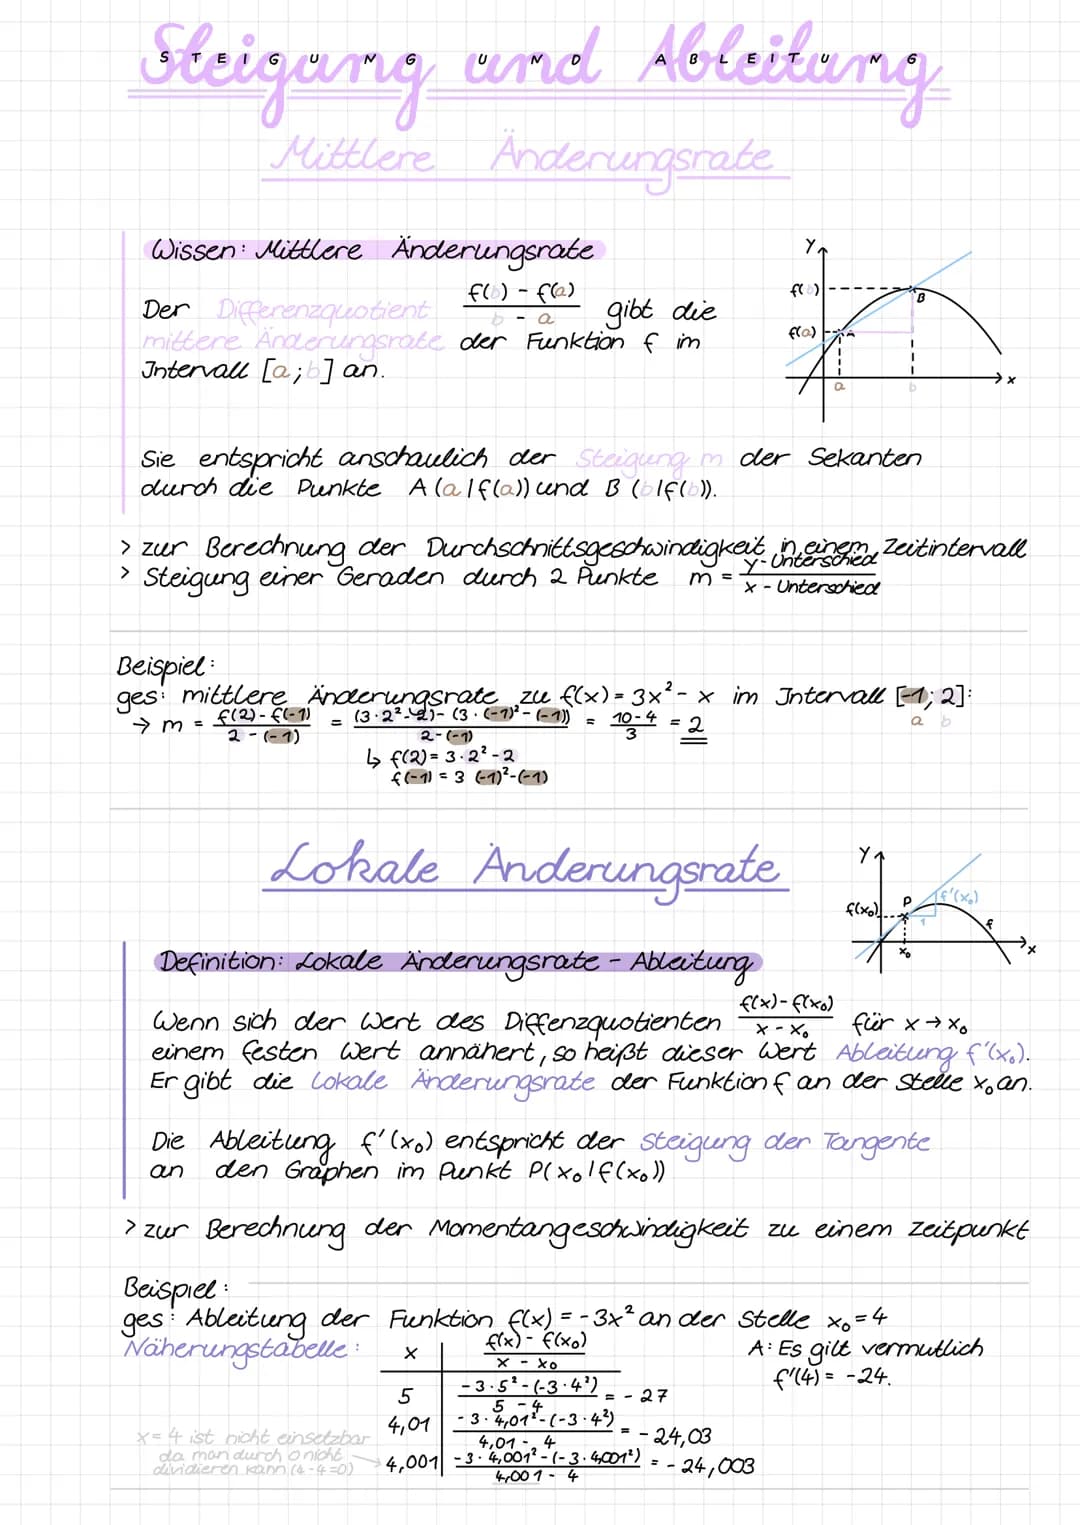 Steigung und Ableitung
STEIGUNG UND ABLEITUNG
Mittlere Änderungsrate
Wissen: Mittlere Änderungsrate
Der Differenzquotient (f(b) - f(a)) / (b - a) gibt die
mittere Änderungsrate der Funktion f im
Intervall [a;b] an.
y
f(b)
B
f(a)
A
a
b
x
Sie entspricht anschaulich der Steigung m der Sekanten
durch die Punkte A (a|f(a)) und B (b|f(b)).
> zur Berechnung der Durchschnittsgeschwindigkeit in einem Zeitintervall
> Steigung einer Geraden durch 2 Punkte m = y-Unterschied / x - Unterschied
Beispiel:
ges: mittlere Änderungsrate zu f(x) = 3x² - x im Intervall [-1; 2]:
a b
→ m = (f(2) - f(-1)) / (2 - (-1)) = ((3·2²-2) - (3·(-1)² - (-1))) / (2-(-1)) = (10-4) / 3 = 2
↳ f(2) = 3·2² - 2
f(-1) = 3 (-1)²-(-1)
Lokale Änderungsrate
y
f(x₀)
P
f'(x₀)
1
f
x₀
x
Definition: Lokale Änderungsrate - Ableitung
Wenn sich der Wert des Diffenzquotienten (f(x) - f(x₀)) / (x - x₀) für x → x₀
einem festen Wert annähert, so heißt dieser Wert Ableitung f'(x₀).
Er gibt die lokale Änderungsrate der Funktion f an der Stelle x₀ an.
Die Ableitung f'(x₀) entspricht der Steigung der Tangente
an den Graphen im Punkt P(x₀|f(x₀))
> zur Berechnung der Momentangeschwindigkeit zu einem Zeitpunkt
Beispiel:
ges: Ableitung der Funktion f(x) = -3x² an der Stelle x₀ = 4
Näherungstabelle:
x | (f(x) - f(x₀)) / (x - x₀)
5 | (-3·5² - (-3·4²)) / (5 - 4) = -27
4,01 | (-3·4,01² - (-3·4²)) / (4,01 - 4) = -24,03
4,001 | (-3·4,001² - (-3·4,001²)) / (4,001 - 4) = -24,003
A: Es gilt vermutlich
f'(4) = -24.
x = 4 ist nicht einsetzbar
da man durch 0 nicht
dividieren kann (4-4=0)